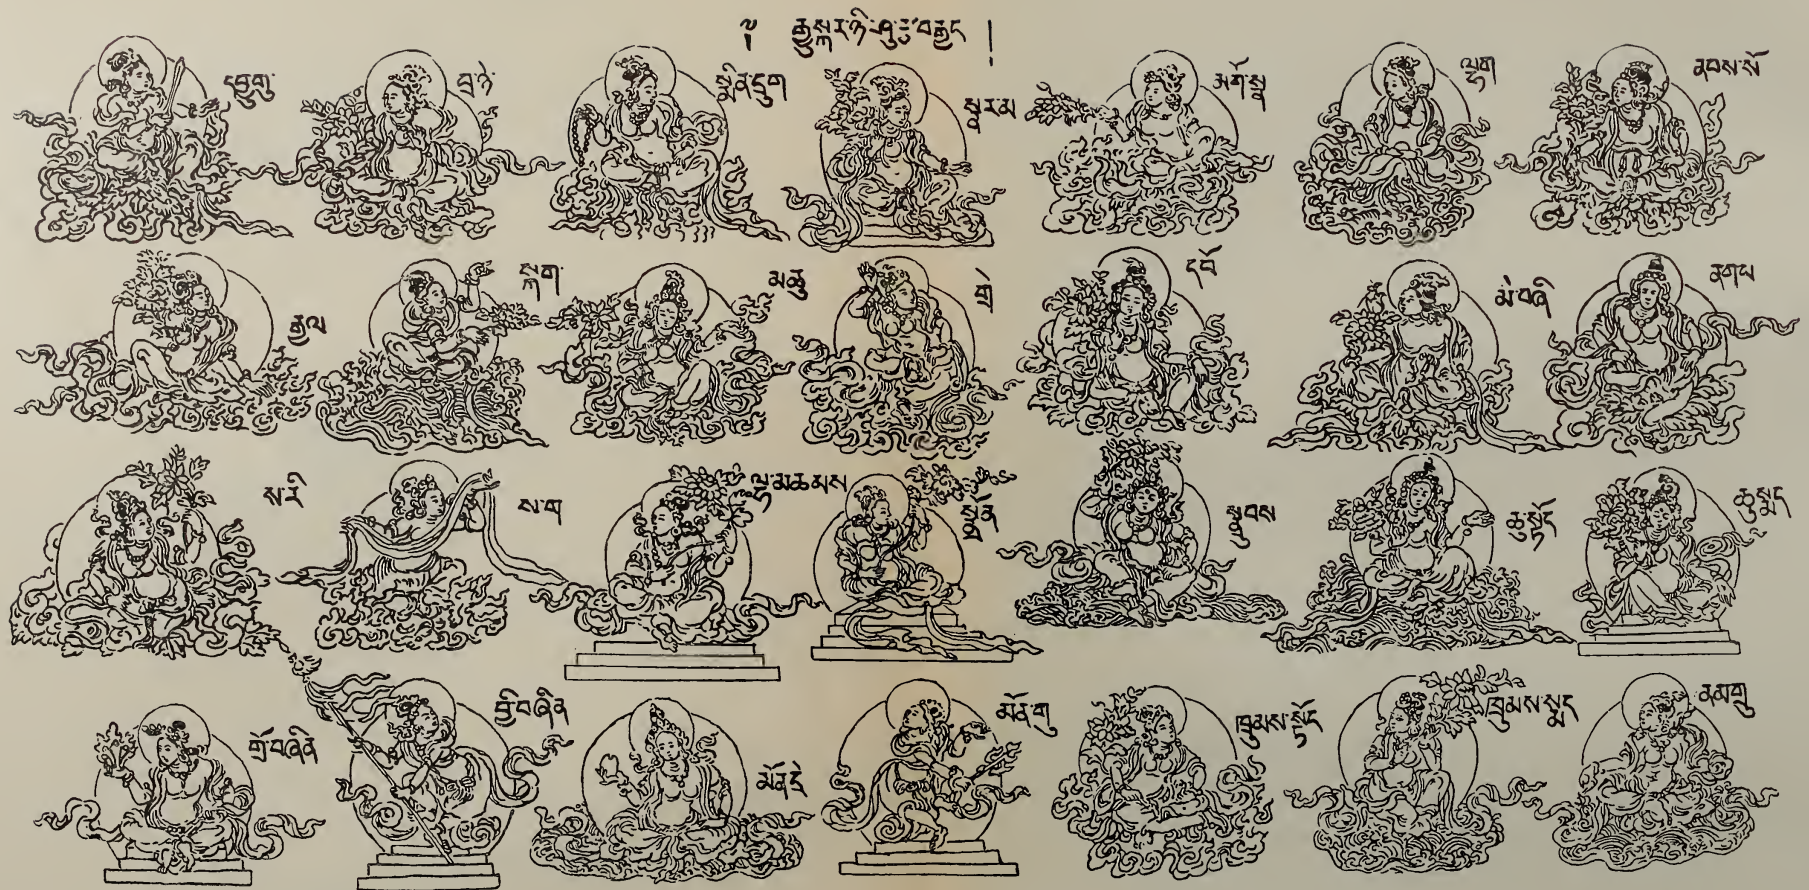 ༈ རྒྱུ་སྐར་ཉི་ཤུ་རྩ་བརྒྱད །
དབྱུ་གུ་
བྲ་ཉེ་
སྨིན་དྲུག
སྣར་མ
ནབས་སོ
རྒྱལ
སྐག་
མཆུ
གྲེ
དབོ
མེ་བཞི
ནག་པ
ས་རི
ས་ག
ལྷ་མཚམས
སྣྲོན
སྣྲུབས
ཆུ་སྟོད
ཆུ་སྨད
གྲོ་བཞིན
བྱི་བཞིན
མོན་དྲེ
མོན་གྲུ
ཁྲུམས་སྟོད
ཁྲུམས་སྨད
ནམ་གྲུ